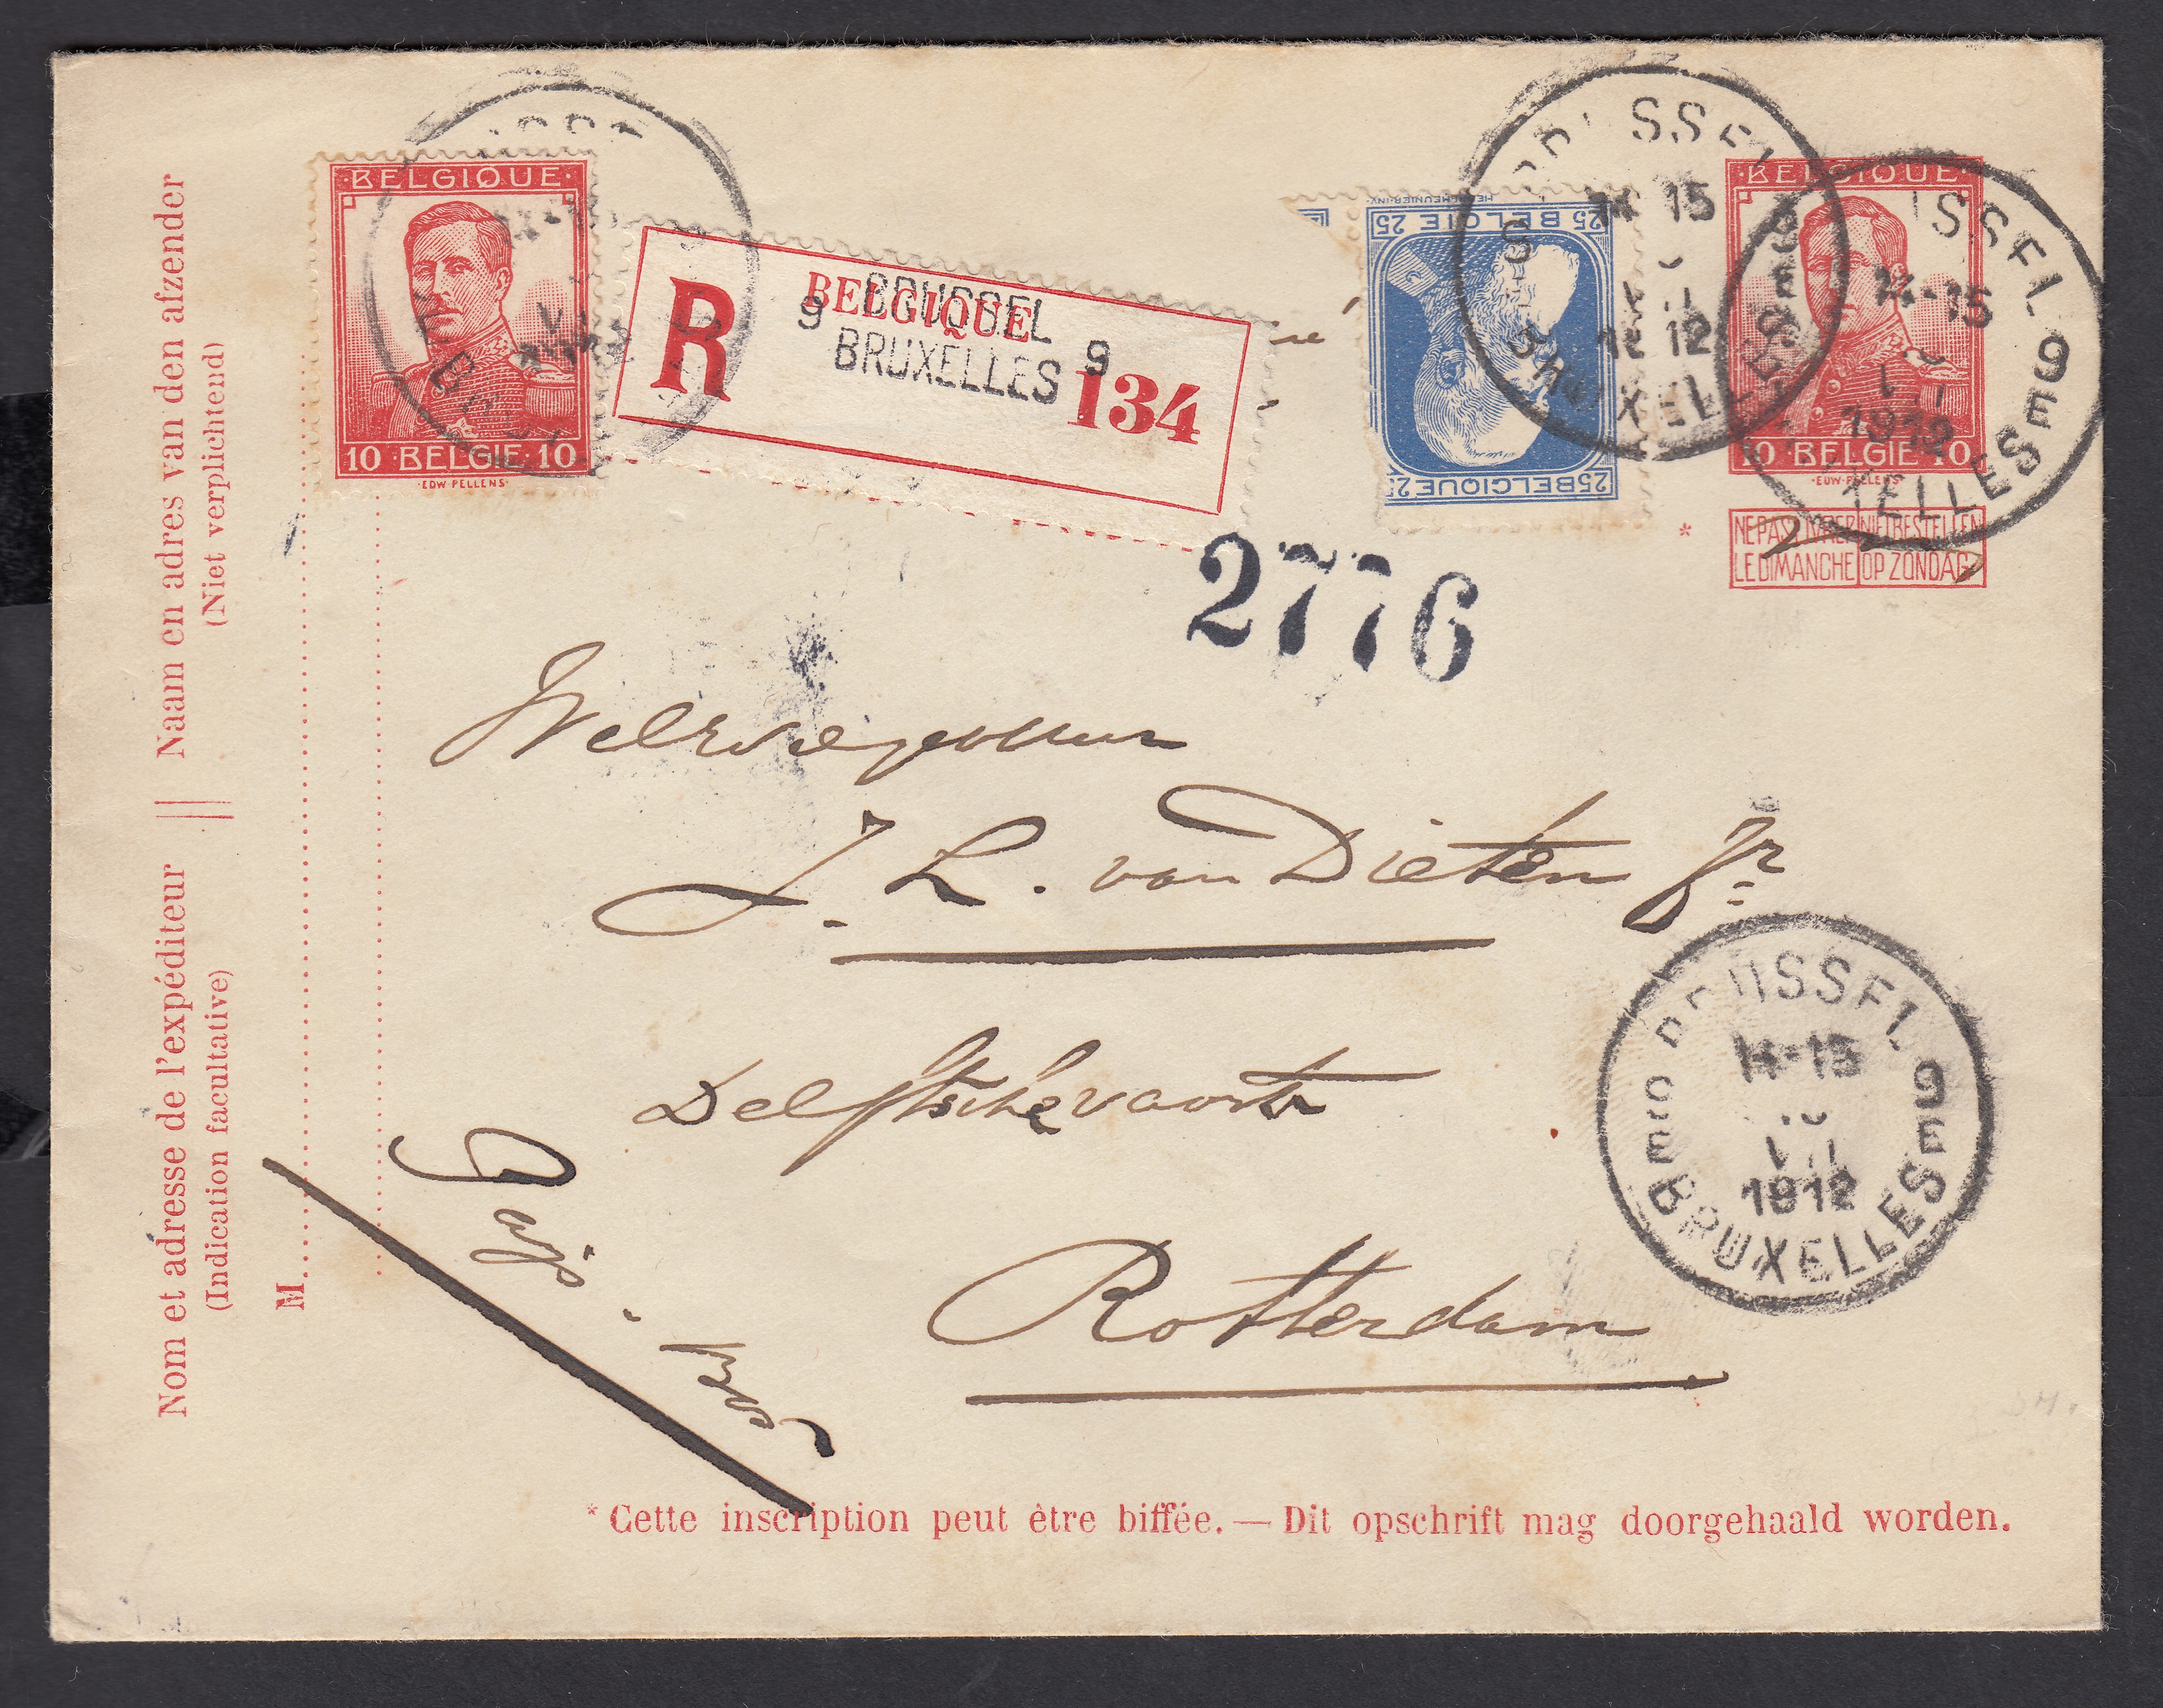 BELGIQUE
10 BELGIE 10
EDW·PELLENS
R
BELGIQUE
BRUSSEL
9 9
BRUXELLES
134
25 BELGIE 25
25 BELGIQUE 25
14-15
1912
BRUXELLES
BELGIQUE
10 BELGIE 10
EDW·PELLENS
14-15
1912
9
*
NE PAS LIVRER LE DIMANCHE
NIET BESTELLEN OP ZONDAG
2776
J. L. van Dieten Jr
Delftschevaart
Rotterdam
BRUSSEL 9
14-15
1912
BRUXELLES
Naam en adres van den afzender
(Niet verplichtend)
Nom et adresse de l'expéditeur
(Indication facultative)
M.
* Cette inscription peut être biffée. — Dit opschrift mag doorgehaald worden.